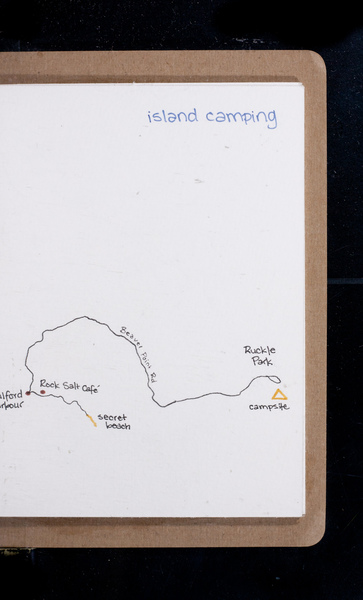 island camping
Beaver Point Rd
Ruckle
Park
Rock Salt Café
campsite
secret
beach